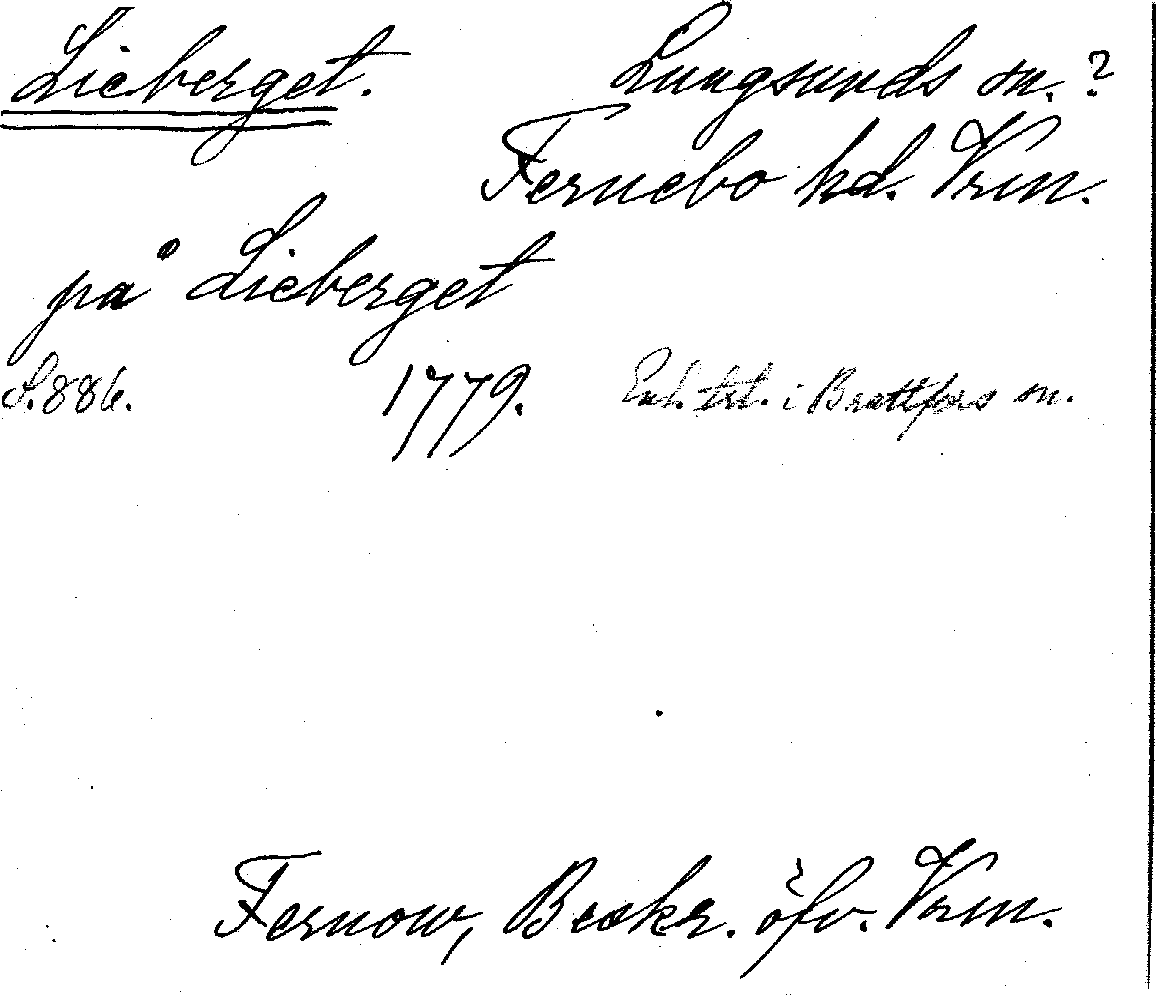 Lieberget. Lungsunds sn.?
Fernebo hd. Vrm.
på Lieberget
S.886. 1779. Enl. trl. i Brattfors sn.
Fernow, Beskr. öfv. Vrm.